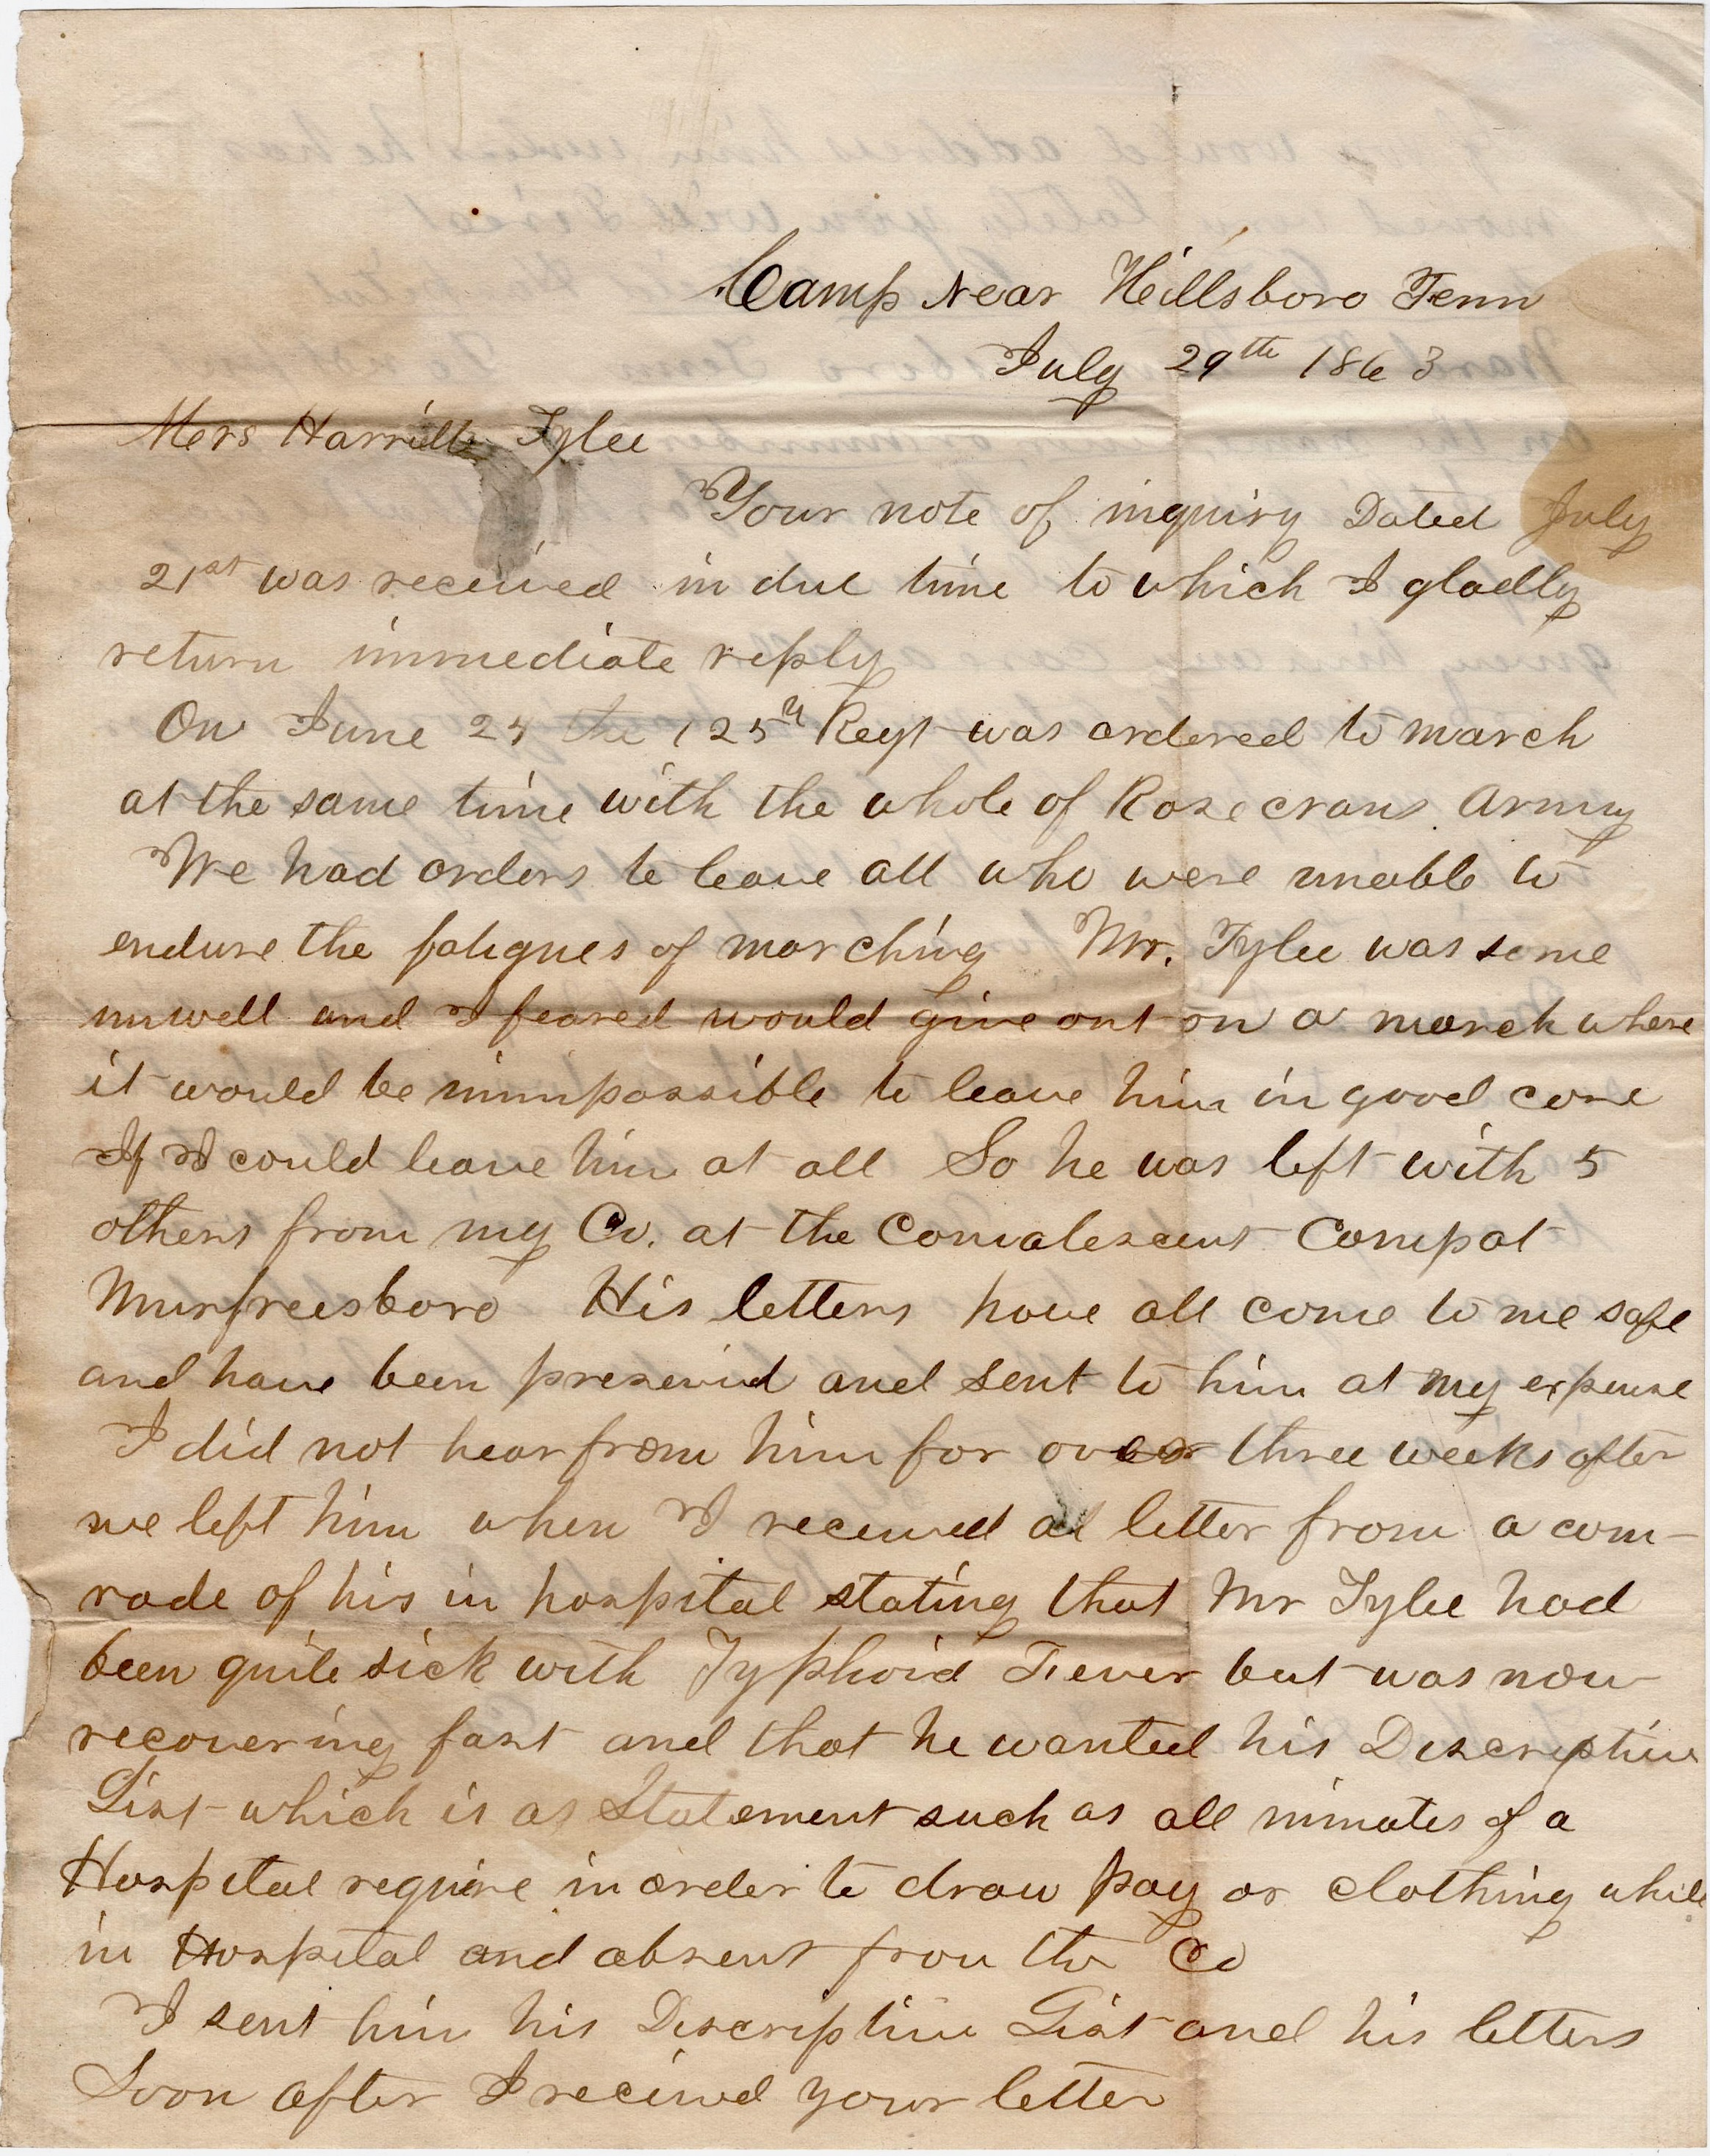 Camp Near Hillsboro Tenn
July 29th 1863
Mers Harriette Tylee
Your note of inquiry Dated July
21st was received in due time to which I gladly
return immediate reply
On June 24 the 125th Regt was ordered to march
at the same time with the whole of Rosecrans Army
We had orders to leave all who were unable to
endure the fatigues of marching Mr. Tylee was some
unwell and I feared would give out on a march where
it would be immpossible to leave him in good care
If I could leave him at all So he was left with 5
others from my Co. at the Convalescent Camp at
Murfreesboro His letters have all come to me safe
and have been preserved and sent to him at my expense
I did not hear from him for over three weeks after
we left him when I received a letter from a com-
rade of his in hospital stating that Mr Tylee had
been quite sick with Typhoid Fever but was now
recovering fast and that he wanted his Descriptive
List which is as Statement such as all inmates of a
Hospital require in order to draw pay or clothing while
in Hospital and absent from the Co
I sent him his Descriptive List and his letters
Soon after I received your letter